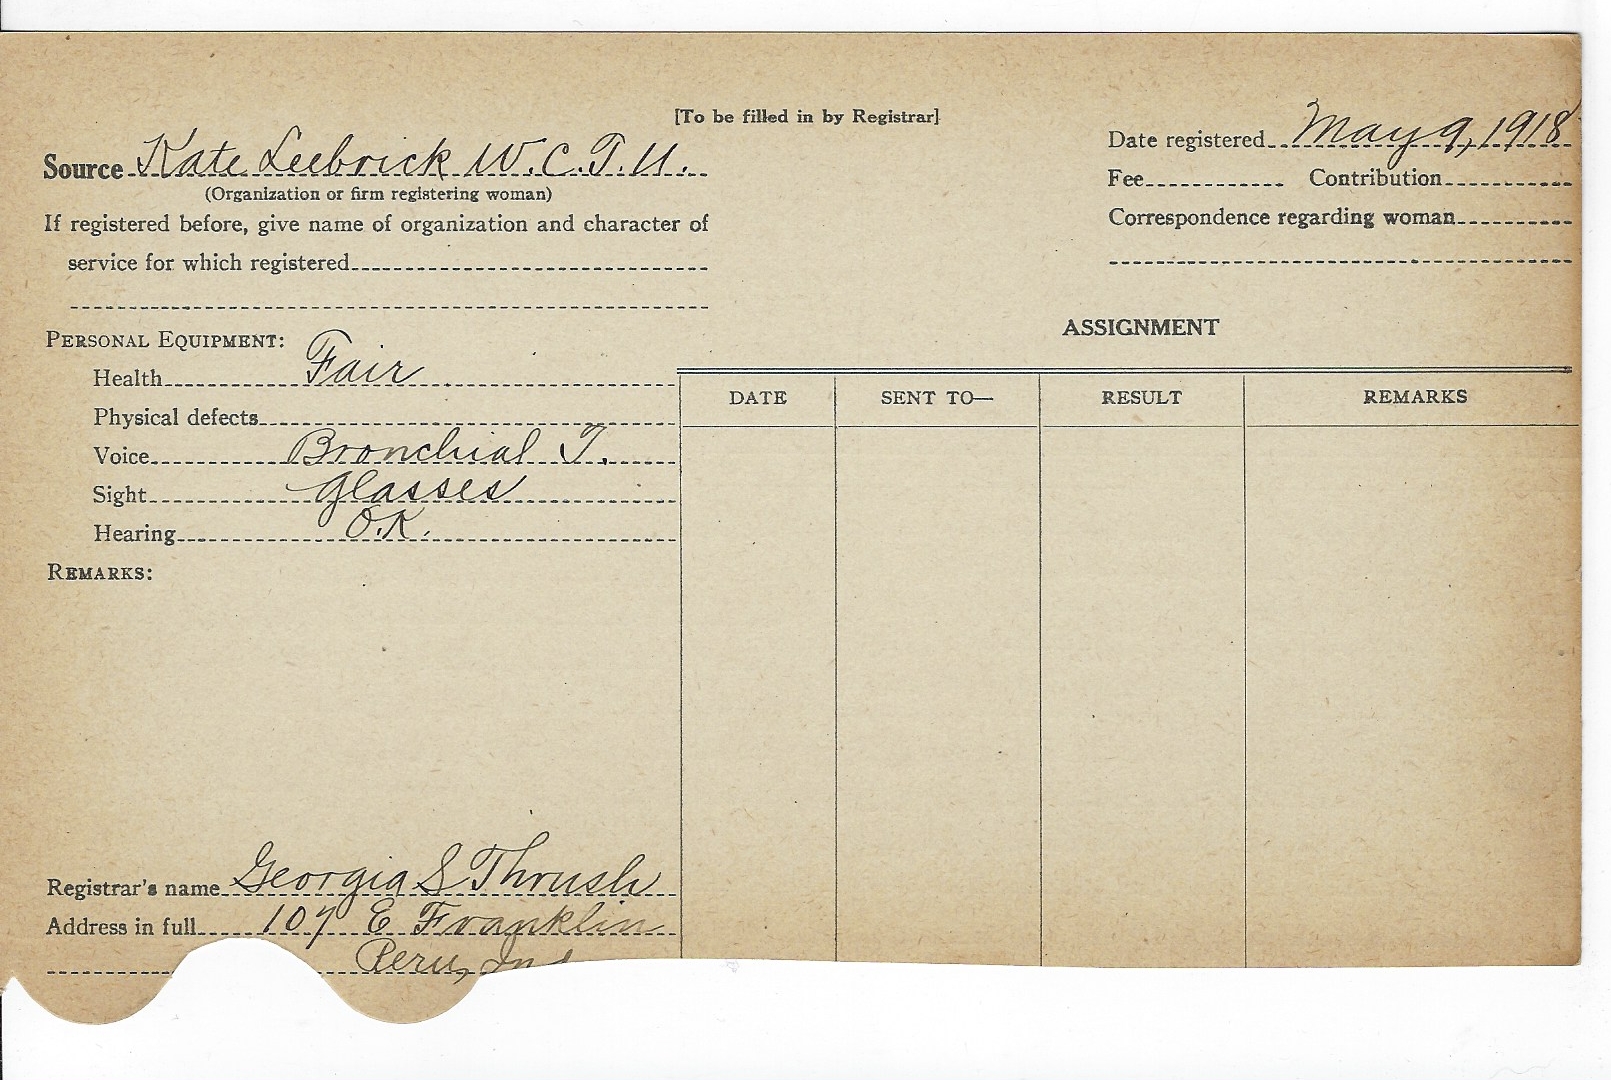 [To be filled in by Registrar]
Source Kate Leebrick W.C.T.U.
(Organization or firm registering woman)
If registered before, give name of organization and character of
service for which registered
Date registered May 9, 1918
Fee Contribution
Correspondence regarding woman
PERSONAL EQUIPMENT:
Health Fair
Physical defects
Voice Bronchial T.
Sight Glasses
Hearing O.K.
REMARKS:
ASSIGNMENT
DATE SENT TO— RESULT REMARKS
Registrar's name Georgia S Thrush
Address in full 107 E Franklin
Peru, Ind